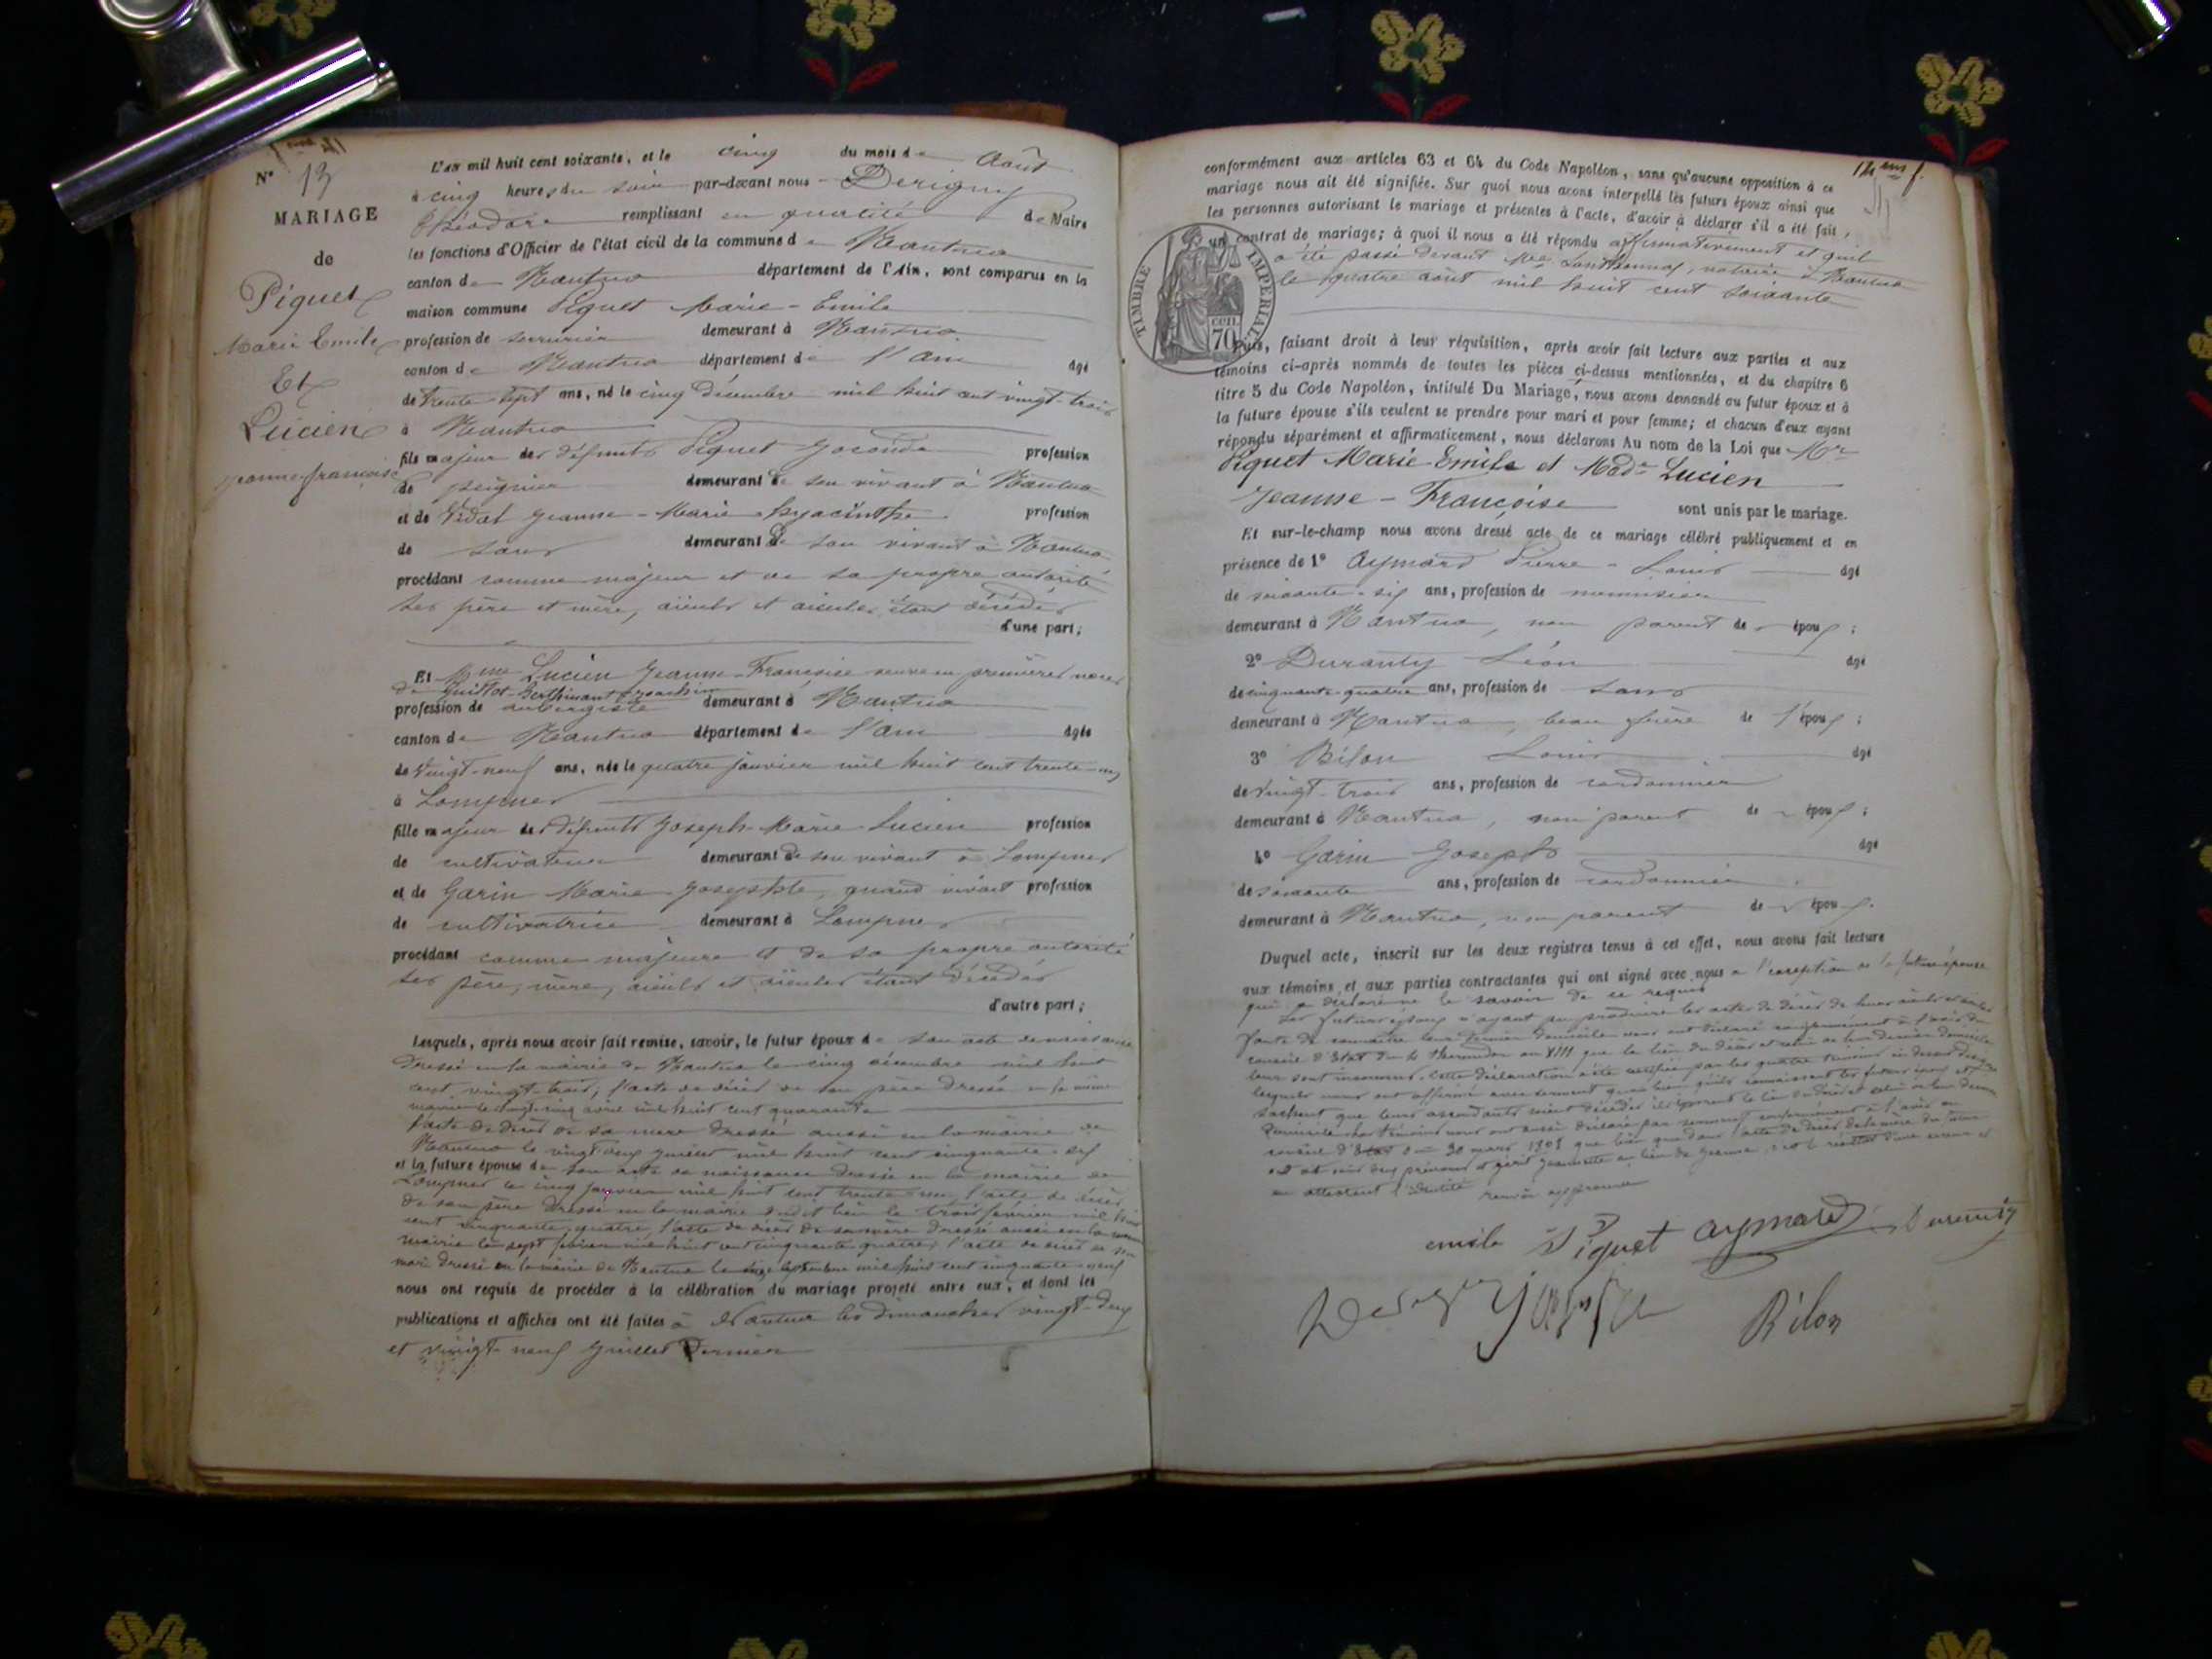 N° 13
MARIAGE
de
Piquet
Marie Emile
Et
Lucien
Jeanne-françoise
L'an mil huit cent soixante, et le cinq du mois de Août
à cinq heures du soir par-devant nous Derigny
Théodore remplissant en qualité de Maire
les fonctions d'Officier de l'état civil de la commune de Nantua
canton de Nantua département de l'Ain, sont comparus en la
maison commune Piquet Marie-Emile
profession de serrurier demeurant à Nantua
canton de Nantua département de l'Ain âgé
de trente sept ans, né le cinq décembre mil huit cent vingt-trois
à Nantua
fils majeur des défunts Piquet profession
de peignier demeurant de son vivant à Nantua
et de Vidal Jeanne-Marie-hyacinthe profession
de sans demeurant de son vivant à Nantua
procédant comme majeur et de sa propre autorité
ses père et mère, aïeuls et aïeules étant décédés
d'une part;
Et Mme Lucien Jeanne-Françoise veuve en premières noces
de Guittot
profession de aubergiste demeurant à Nantua
canton de Nantua département de l'Ain âgée
de vingt-neuf ans, née le quatre janvier mil huit cent trente-un
à Lompnes
fille majeur des défunts Joseph-Marie Lucien profession
de cultivateur demeurant de son vivant à Lompnes
et de Garin Marie-Josephte, quand vivait profession
de cultivatrice demeurant à Lompnes
procédant comme majeure et de sa propre autorité
ses père, mère, aïeuls et aïeules étant décédés
d'autre part;
Lesquels, après nous avoir fait remise, savoir, le futur époux de son acte de naissance
dressé en la mairie de Nantua le cinq décembre mil huit
cent vingt-trois, l'acte de décès de son père dressé en la même
mairie le vingt-cinq avril mil huit cent quarante
l'acte de décès de sa mère dressé aussi en la mairie de
Nantua le vingt deux janvier mil huit cent cinquante-six
et la future épouse de son acte de naissance dressé en la mairie de
Lompnes le cinq janvier mil huit cent trente-un, l'acte de décès
de son père dressé en la mairie dudit lieu le trois février mil huit
cent cinquante quatre, l'acte de décès de sa mère dressé aussi en la même
mairie le sept février mil huit cent cinquante quatre, l'acte de décès de son
mari dressé en la mairie de Nantua le septembre mil huit cent cinquante-neuf
nous ont requis de procéder à la célébration du mariage projeté entre eux, et dont les
publications et affiches ont été faites à Nantua les dimanches vingt-deux
et vingt-neuf Juillet dernier
conformément aux articles 63 et 64 du Code Napoléon, sans qu'aucune opposition à ce
mariage nous ait été signifiée. Sur quoi nous avons interpellé les futurs époux ainsi que
les personnes autorisant le mariage et présentes à l'acte, d'avoir à déclarer s'il a été fait,
un contrat de mariage; à quoi il nous a été répondu affirmativement et qu'il
a été passé devant Me notaire à Nantua
le quatre août mil huit cent soixante
TIMBRE IMPERIAL
cen.
70
Puis, faisant droit à leur réquisition, après avoir fait lecture aux parties et aux
témoins ci-après nommés de toutes les pièces ci-dessus mentionnées, et du chapitre 6
titre 5 du Code Napoléon, intitulé Du Mariage, nous avons demandé au futur époux et à
la future épouse s'ils veulent se prendre pour mari et pour femme; et chacun d'eux ayant
répondu séparément et affirmativement, nous déclarons Au nom de la Loi que Mr
Piquet Marie Emile et Made Lucien
Jeanne-Françoise sont unis par le mariage.
Et sur-le-champ nous avons dressé acte de ce mariage célébré publiquement et en
présence de 1° Aymard Pierre-Louis âgé
de soixante-six ans, profession de menuisier
demeurant à Nantua, non parent de époux;
2° Duranty Léon âgé
de cinquante-quatre ans, profession de sans
demeurant à Nantua, beau frère de l'époux;
3° Bilon Louis âgé
de vingt-trois ans, profession de cordonnier
demeurant à Nantua, non parent de époux;
4° Garin Joseph âgé
de soixante ans, profession de cordonnier
demeurant à Nantua, non parent de époux.
Duquel acte, inscrit sur les deux registres tenus à cet effet, nous avons fait lecture
aux témoins et aux parties contractantes qui ont signé avec nous à l'exception de la future épouse
qui a déclaré ne le savoir de ce requis
Les futurs époux n'ayant pu produire les actes de décès de leurs aïeuls et aïeules
faute de connaître leur dernier domicile nous ont déclaré conformément à l'avis du
conseil d'Etat du 4 thermidor an XIII que le lieu du décès et celui de leur dernier domicile
leur sont inconnus. Cette déclaration a été certifiée par les quatre témoins ci-dessus
lesquels nous ont affirmé avec serment que bien qu'ils connaissent les futurs époux et
sachent que leurs ascendants soient décédés ils ignorent le lieu du décès et celui de leur dernier
domicile. Les témoins nous ont aussi déclaré par serment conformément à l'avis du
conseil d'Etat du 30 mars 1808 que bien que dans l'acte de décès de la mère du futur
en attestent l'identité renvoi approuvé
emile Piquet Aymard Duranty
Bilon